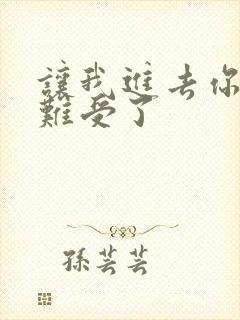 讓我進去你
難受了
孫芸芸